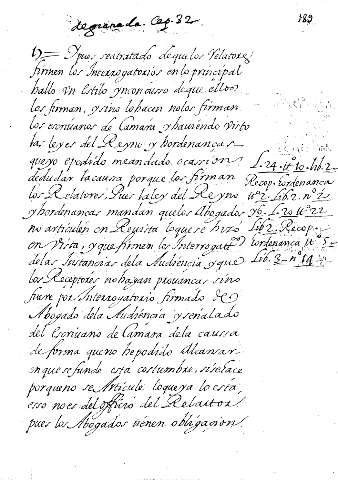 de granada. Cap. 32
189
Pues se a tratado de que los Relatores
firmen los Interrogatorios en lo principal
hallo Un Estilo y no con uso de que ellos
los firman, y si no lo hacen no los firman
los escrivanos de Camara y haviendo visto
las leyes del Reyno y hordenanças
que yo e podido me an dado ocasion
de dudar la causa porque los firman
los Relatores Pues la ley del Reyno
y hordenanças mandan que los Abogados
no articulen en Revista lo que se hizo
en Vista, y que firmen los Interrogatos
de las Instancias de la Audiencia y que
los Receptores no hayan provanças sino
fuere por Interrogatorio firmado de
Abogado de la Audiencia y señalado
del Escrivano de Camara de la caussa
de forma que no he podido alcansar
en que se funde esta costumbre, si se hace
porque no se Articule lo que ya lo esta,
esso no es del officio del Relactor
pues los Abogados tienen obligacion
L. 24. tto 10. lib. 2.
Recop. hordenanca
tto 2. Lib. 2. no 2
y 6. L. 20 tto 22
Lib 2. Recop.
hordenanca tt 5
Lib. 3. no 14